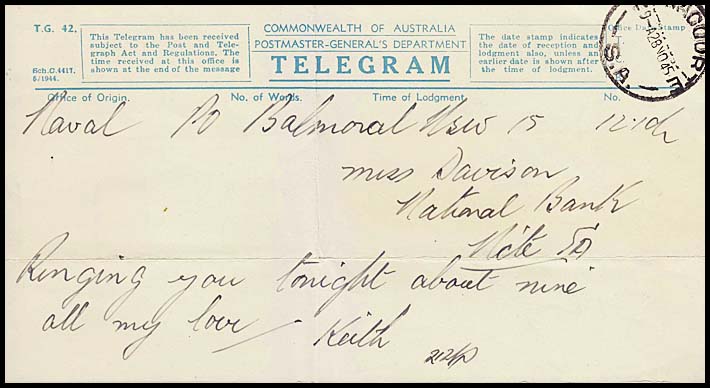 T.G. 42.
This Telegram has been received
subject to the Post and Tele-
graph Act and Regulations. The
time received at this office is
shown at the end of the message
Sch.C.4417.
5/1944.
COMMONWEALTH OF AUSTRALIA
POSTMASTER-GENERAL'S DEPARTMENT
TELEGRAM
The date stamp indicates
the date of reception and
lodgment also, unless an
earlier date is shown after
the time of lodgment.
Office Date Stamp
NARACOORTE
28NO45
S.A.
Office of Origin. No. of Words. Time of Lodgment. No.
Naval PO Balmoral NSW 15 12.10
Miss Davison
National Bank
N'cte SA
Ringing you tonight about nine
all my love — Keith
212p